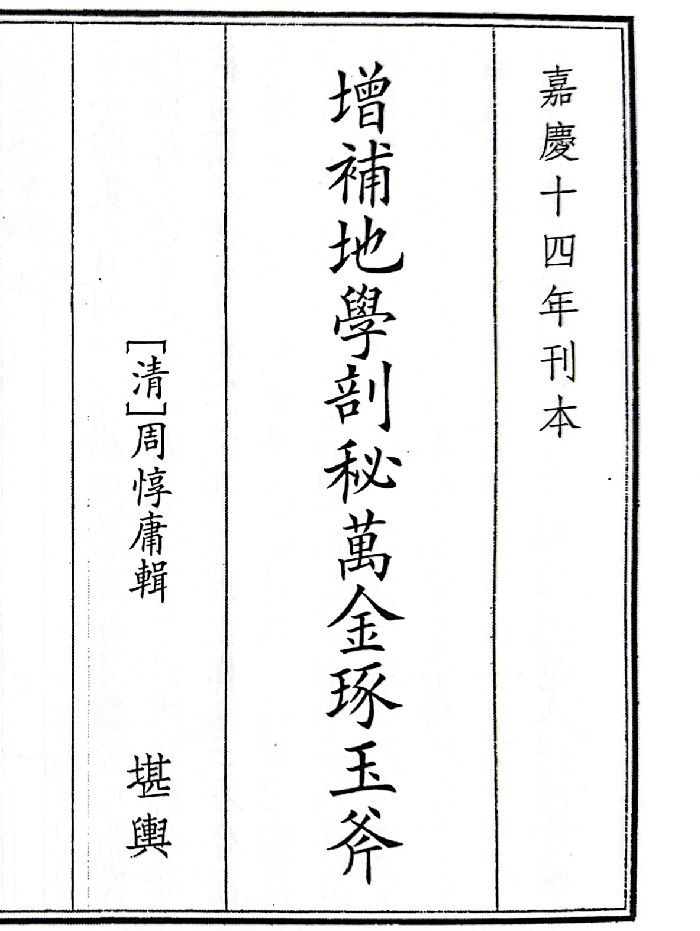 嘉慶十四年刊本
增補地學剖秘萬金琢玉斧
[清]周惇庸輯
堪輿